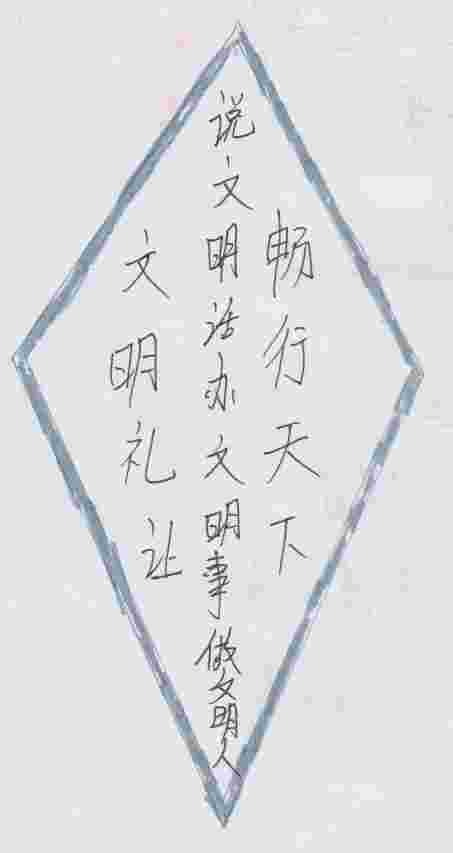 文明礼让
说文明话办文明事做文明人
畅行天下